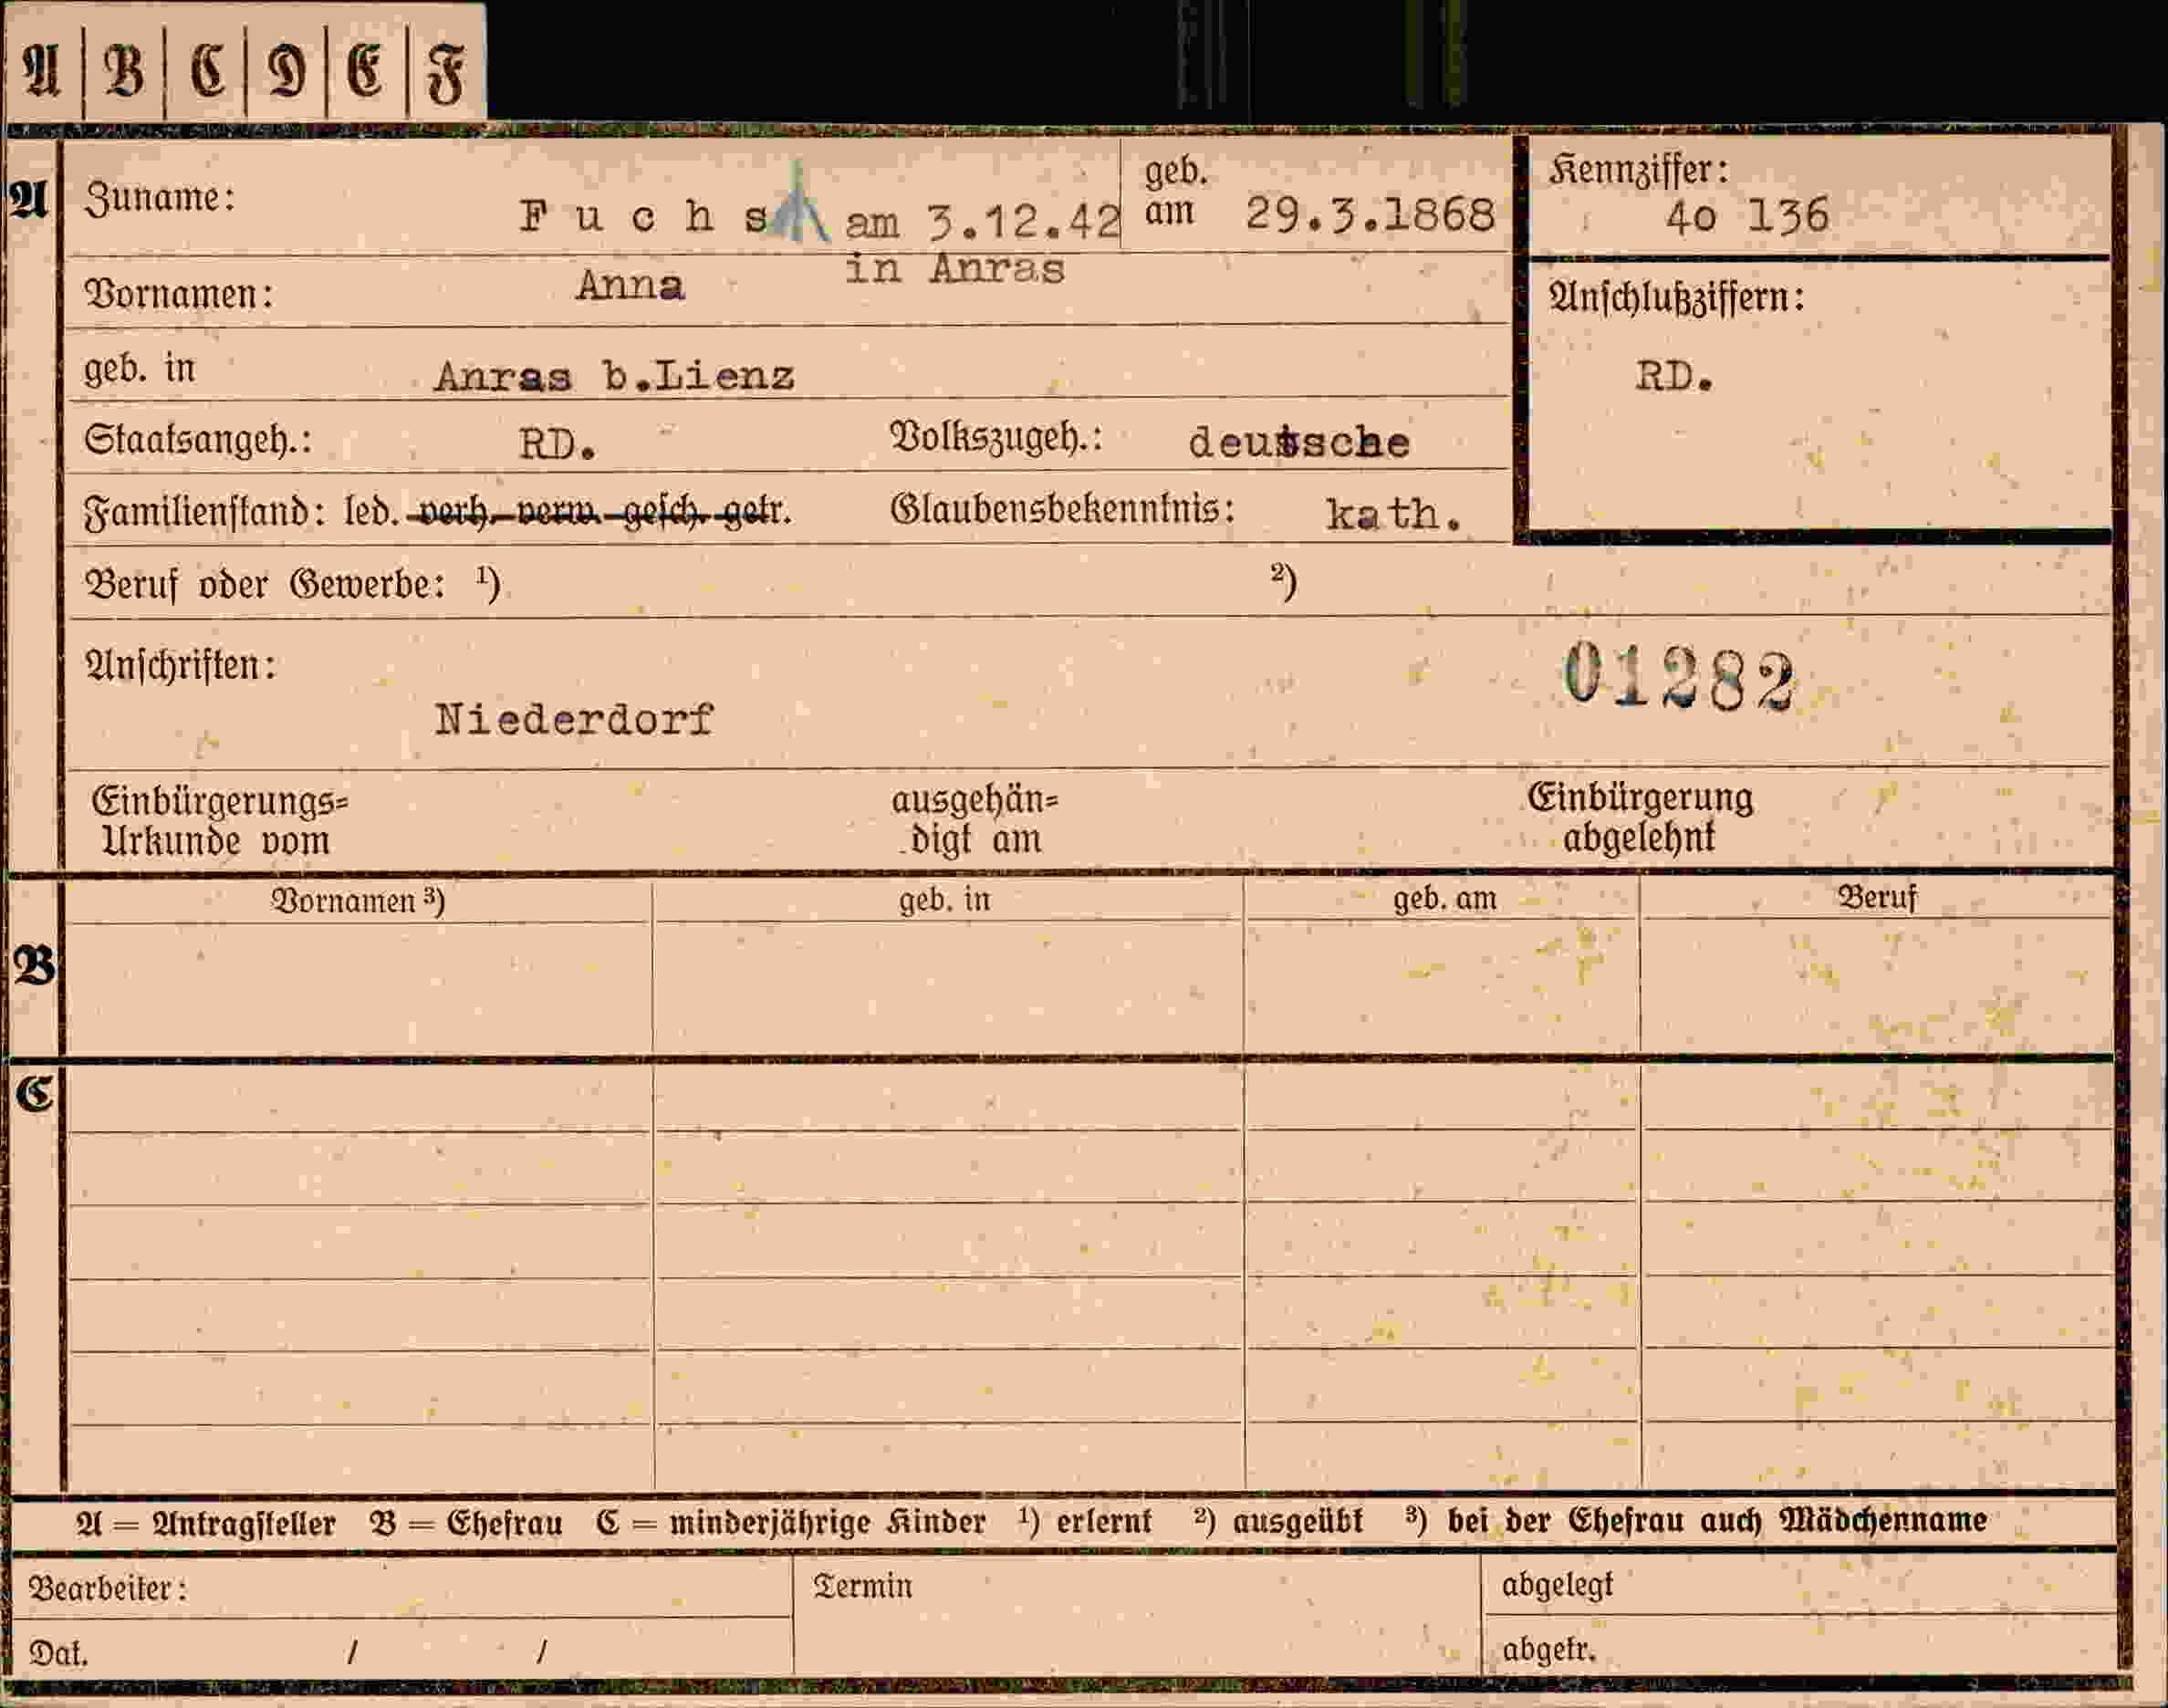 A B C D E F
A Zuname: F u c h s am 3.12.42 geb. am 29.3.1868 Kennziffer: 4o 136
in Anras
Vornamen: Anna
Anschlußziffern:
geb. in Anras b.Lienz RD.
Staatsangeh.: RD. Volkszugeh.: deutsche
Familienstand: led. verh. verw. gesch. getr. Glaubensbekenntnis: kath.
Beruf oder Gewerbe: ¹) ²)
Anschriften: 01282
Niederdorf
Einbürgerungs= ausgehän= Einbürgerung
Urkunde vom digt am abgelehnt
Vornamen ³) geb. in geb. am Beruf
B
C
A = Antragsteller B = Ehefrau C = minderjährige Kinder ¹) erlernt ²) ausgeübt ³) bei der Ehefrau auch Mädchenname
Bearbeiter: Termin abgelegt
Dat. / / abgetr.